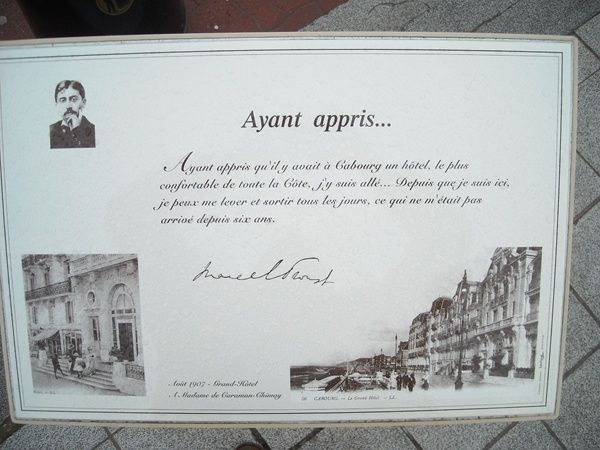 Ayant appris...
Ayant appris qu'il y avait à Cabourg un hôtel, le plus
confortable de toute la Côte, j'y suis allé... Depuis que je suis ici,
je peux me lever et sortir tous les jours, ce qui ne m'était pas
arrivé depuis six ans.
Marcel Proust
Août 1907 - Grand-Hôtel
A Madame de Caraman-Chimay
38 CABOURG. — Le Grand Hôtel — LL.